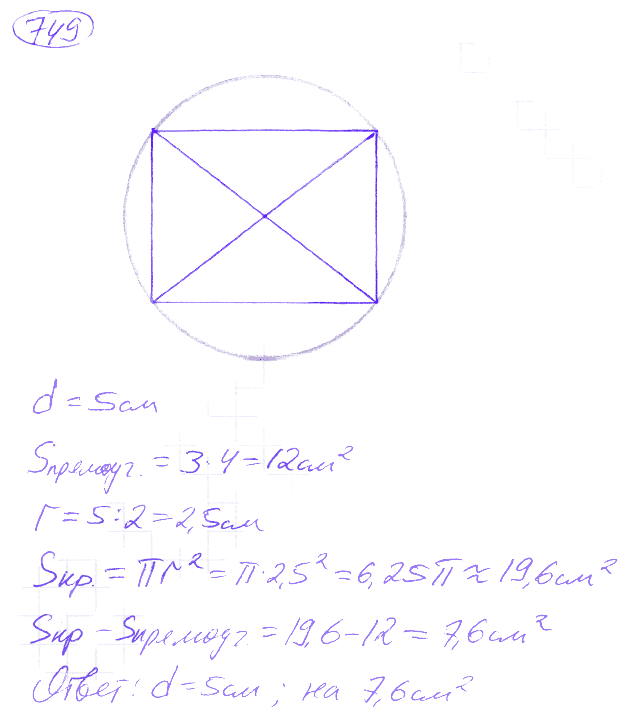 749
d = 5 см
Sпрямоуг. = 3·4 = 12 см²
r = 5:2 = 2,5 см
Sкр. = πr² = π·2,5² = 6,25π ≈ 19,6 см²
Sкр − Sпрямоуг. = 19,6 − 12 = 7,6 см²
Ответ: d = 5 см; на 7,6 см²